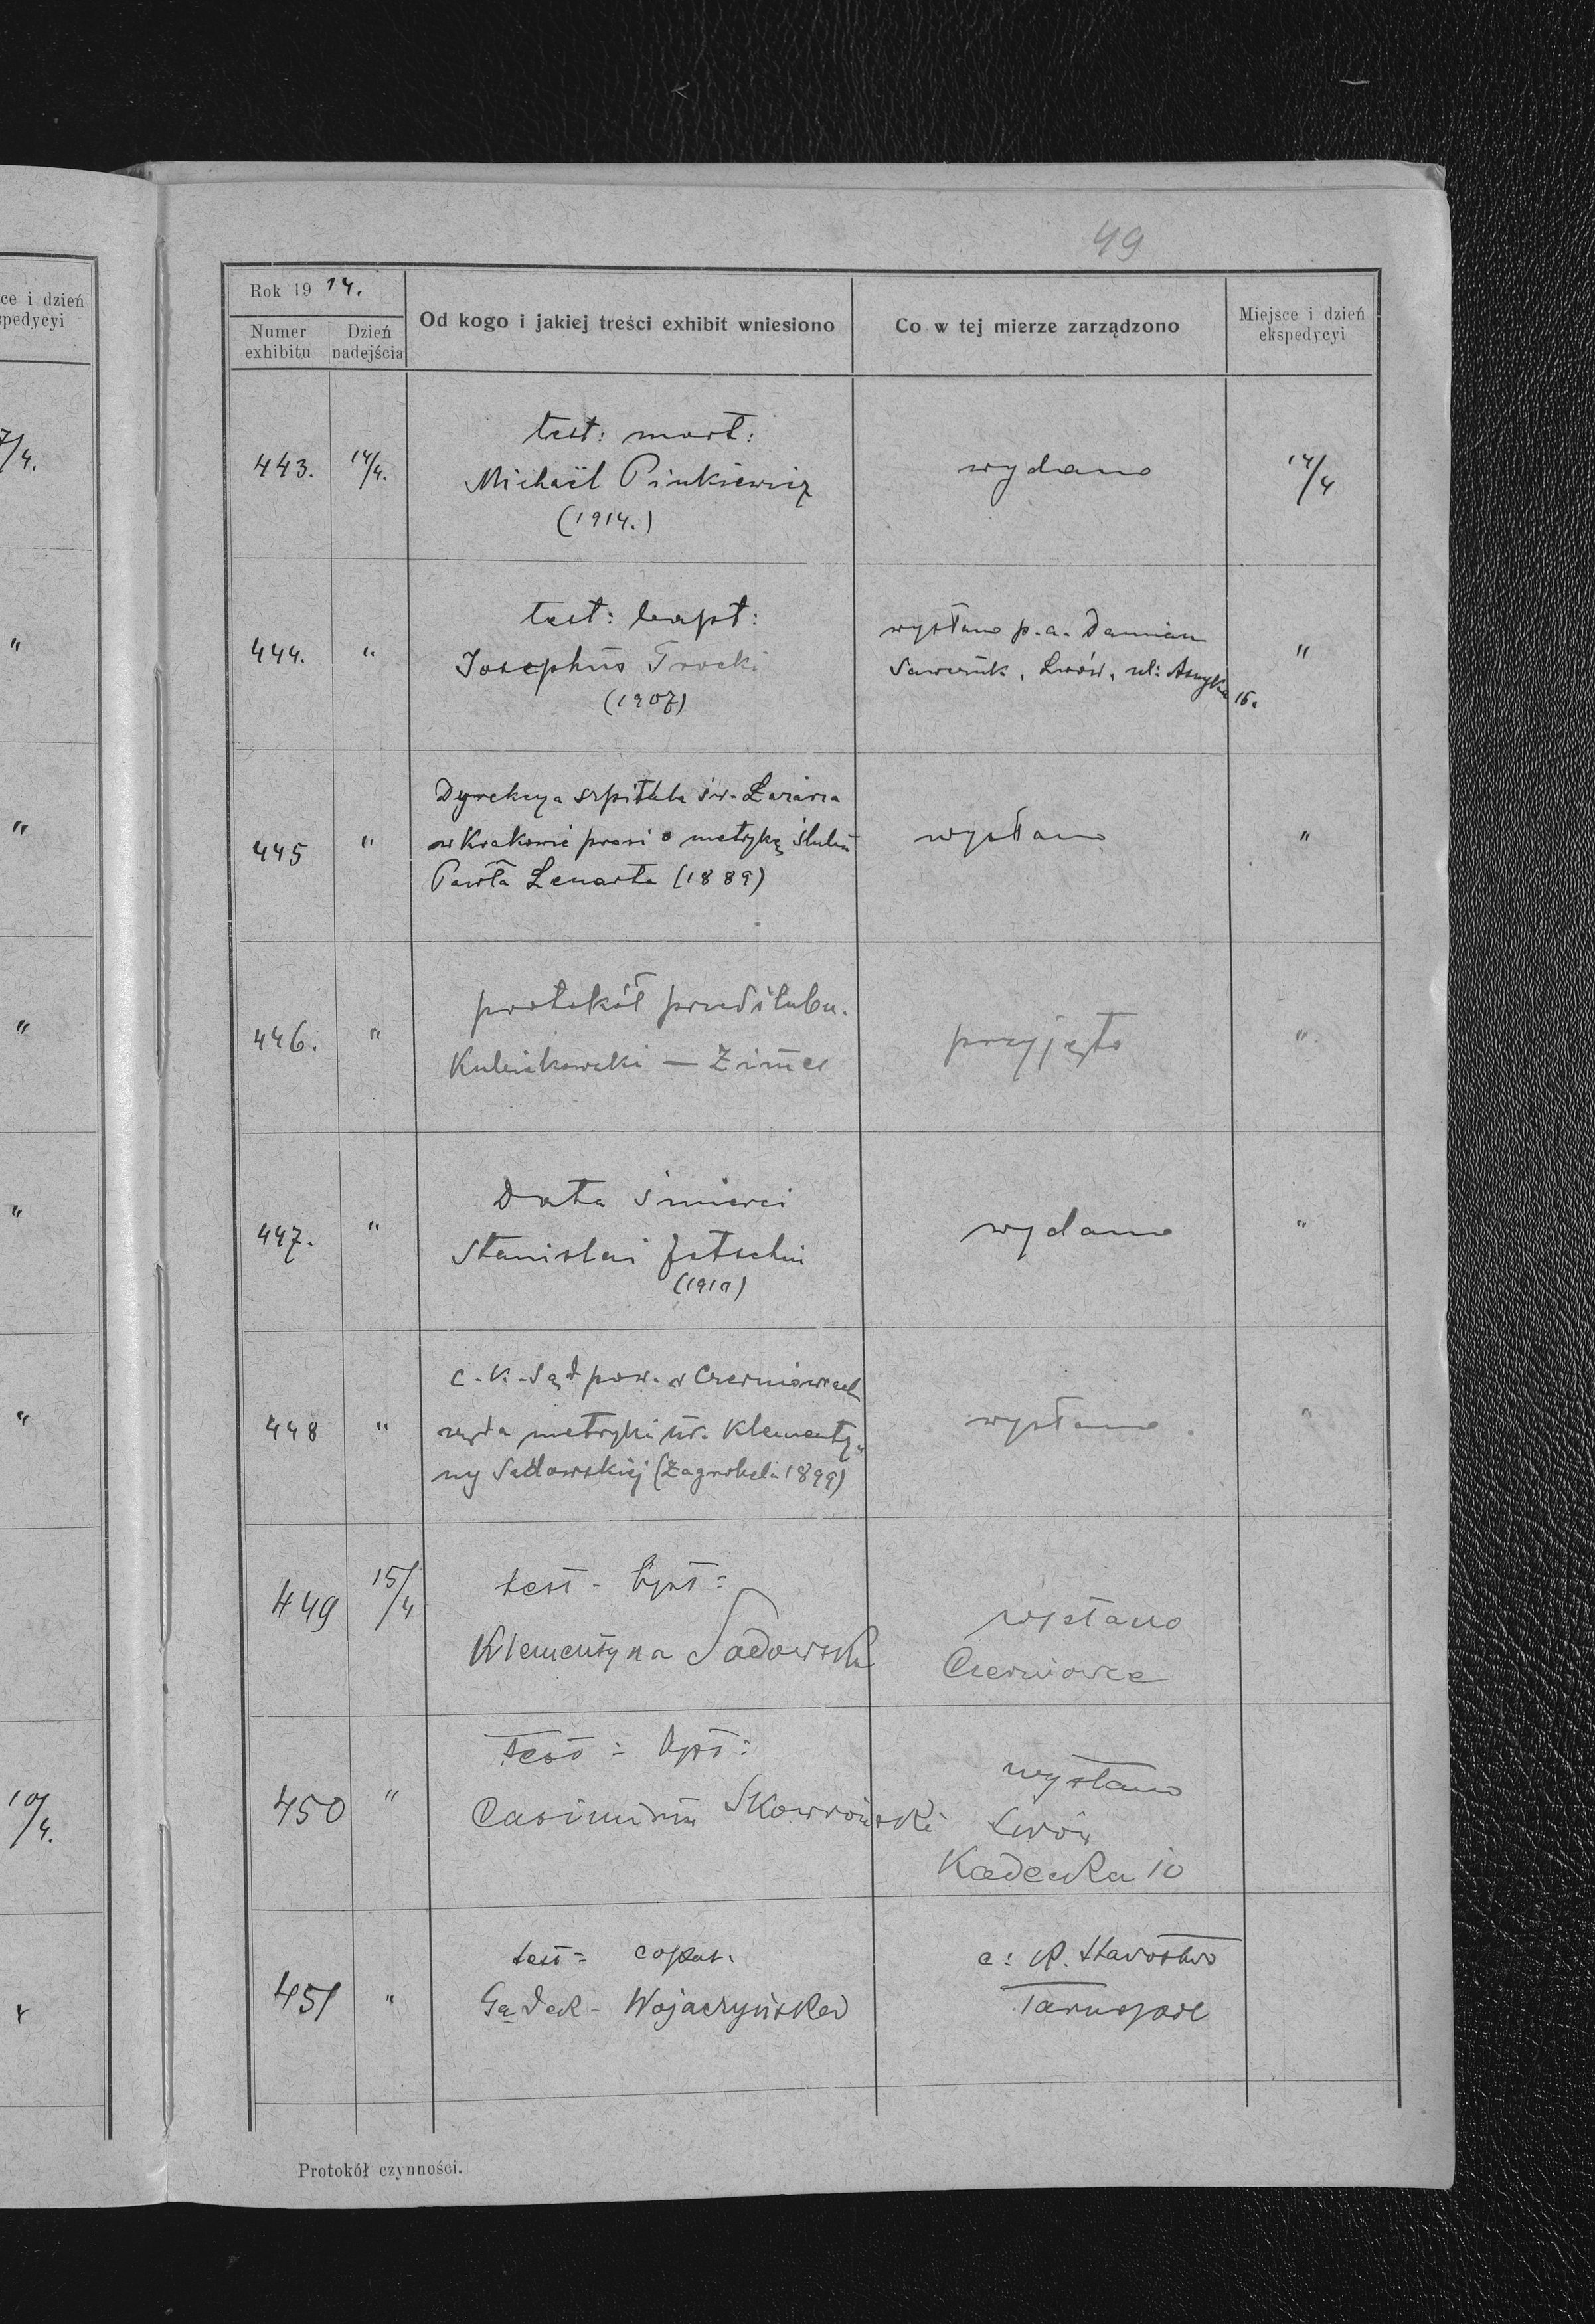 ce i dzień
spedycyi
7/4.
"
"
"
"
"
10/4.
49
Rok 1914.
Numer exhibitu
Dzień nadejścia
Od kogo i jakiej treści exhibit wniesiono
Co w tej mierze zarządzono
Miejsce i dzień ekspedycyi
443. 14/4.
test: mort:
Michaël Pinkiewicz
(1914.)
wydano
14/4
444. "
test: bapt:
Josephus Trocki
(1907)
wysłano p. a. Damian
Sawczuk, Lwów, ul: Asnyka 16.
"
445 "
Dyrekcya szpitala św. Łazarza
w Krakowie prosi o metrykę ślubu
Pawła Lenarta (1889)
wysłano
"
446. "
protokół przedślubn.
Kulczikowski — Zimer
przyjęto
"
447. "
Data śmierci
Stanislai
(1910)
wydano
"
448 "
c. k. Sąd pow. w Czerniowcach
żąda metryki ur. Klementy-
ny Sadowskiej (Zagrobela 1899)
wysłano.
"
449 15/4
test - bpt:
Klementyna Sadowsk
wysłano
Czerniowce
450 "
test: bpt:
Casimirus Skowroński
wysłano
Lwów
Kadecka 10
451 "
test= copul.
Gądek - Wojaczyńska
c: k. Starostwo
Tarnopol
Protokół czynności.